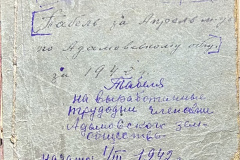 Табель за Апрель м-ц
по Адамовскому
за 194
Табеля
на выработанные
трудодни членами
Адамовского зем-
общества
Начато 1/III 1942